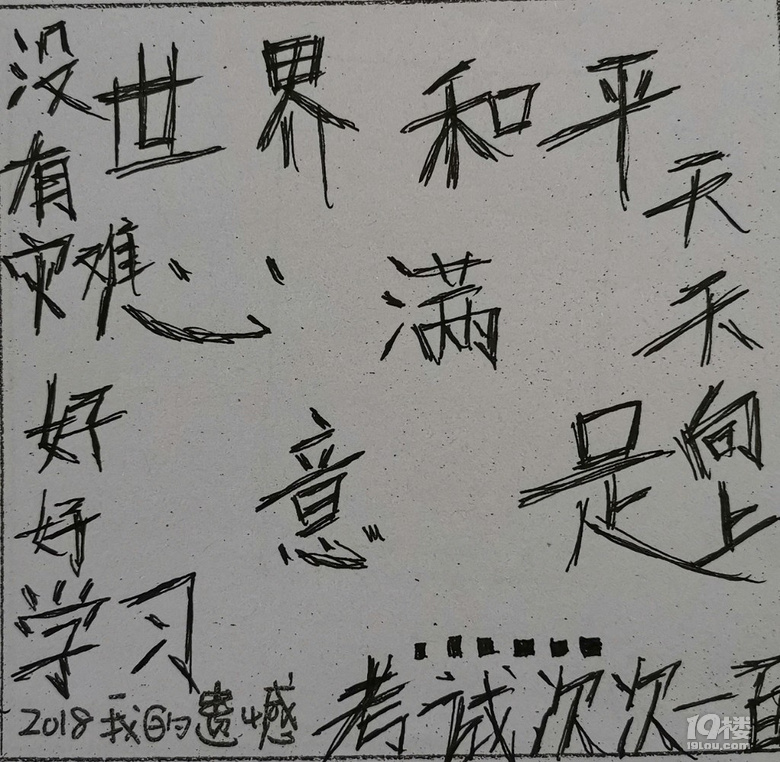 没有灾难
世界和平
心满意足
天天向上
好好学习
......
2018我的遗憾
考试次次一百
19楼
19lou.com